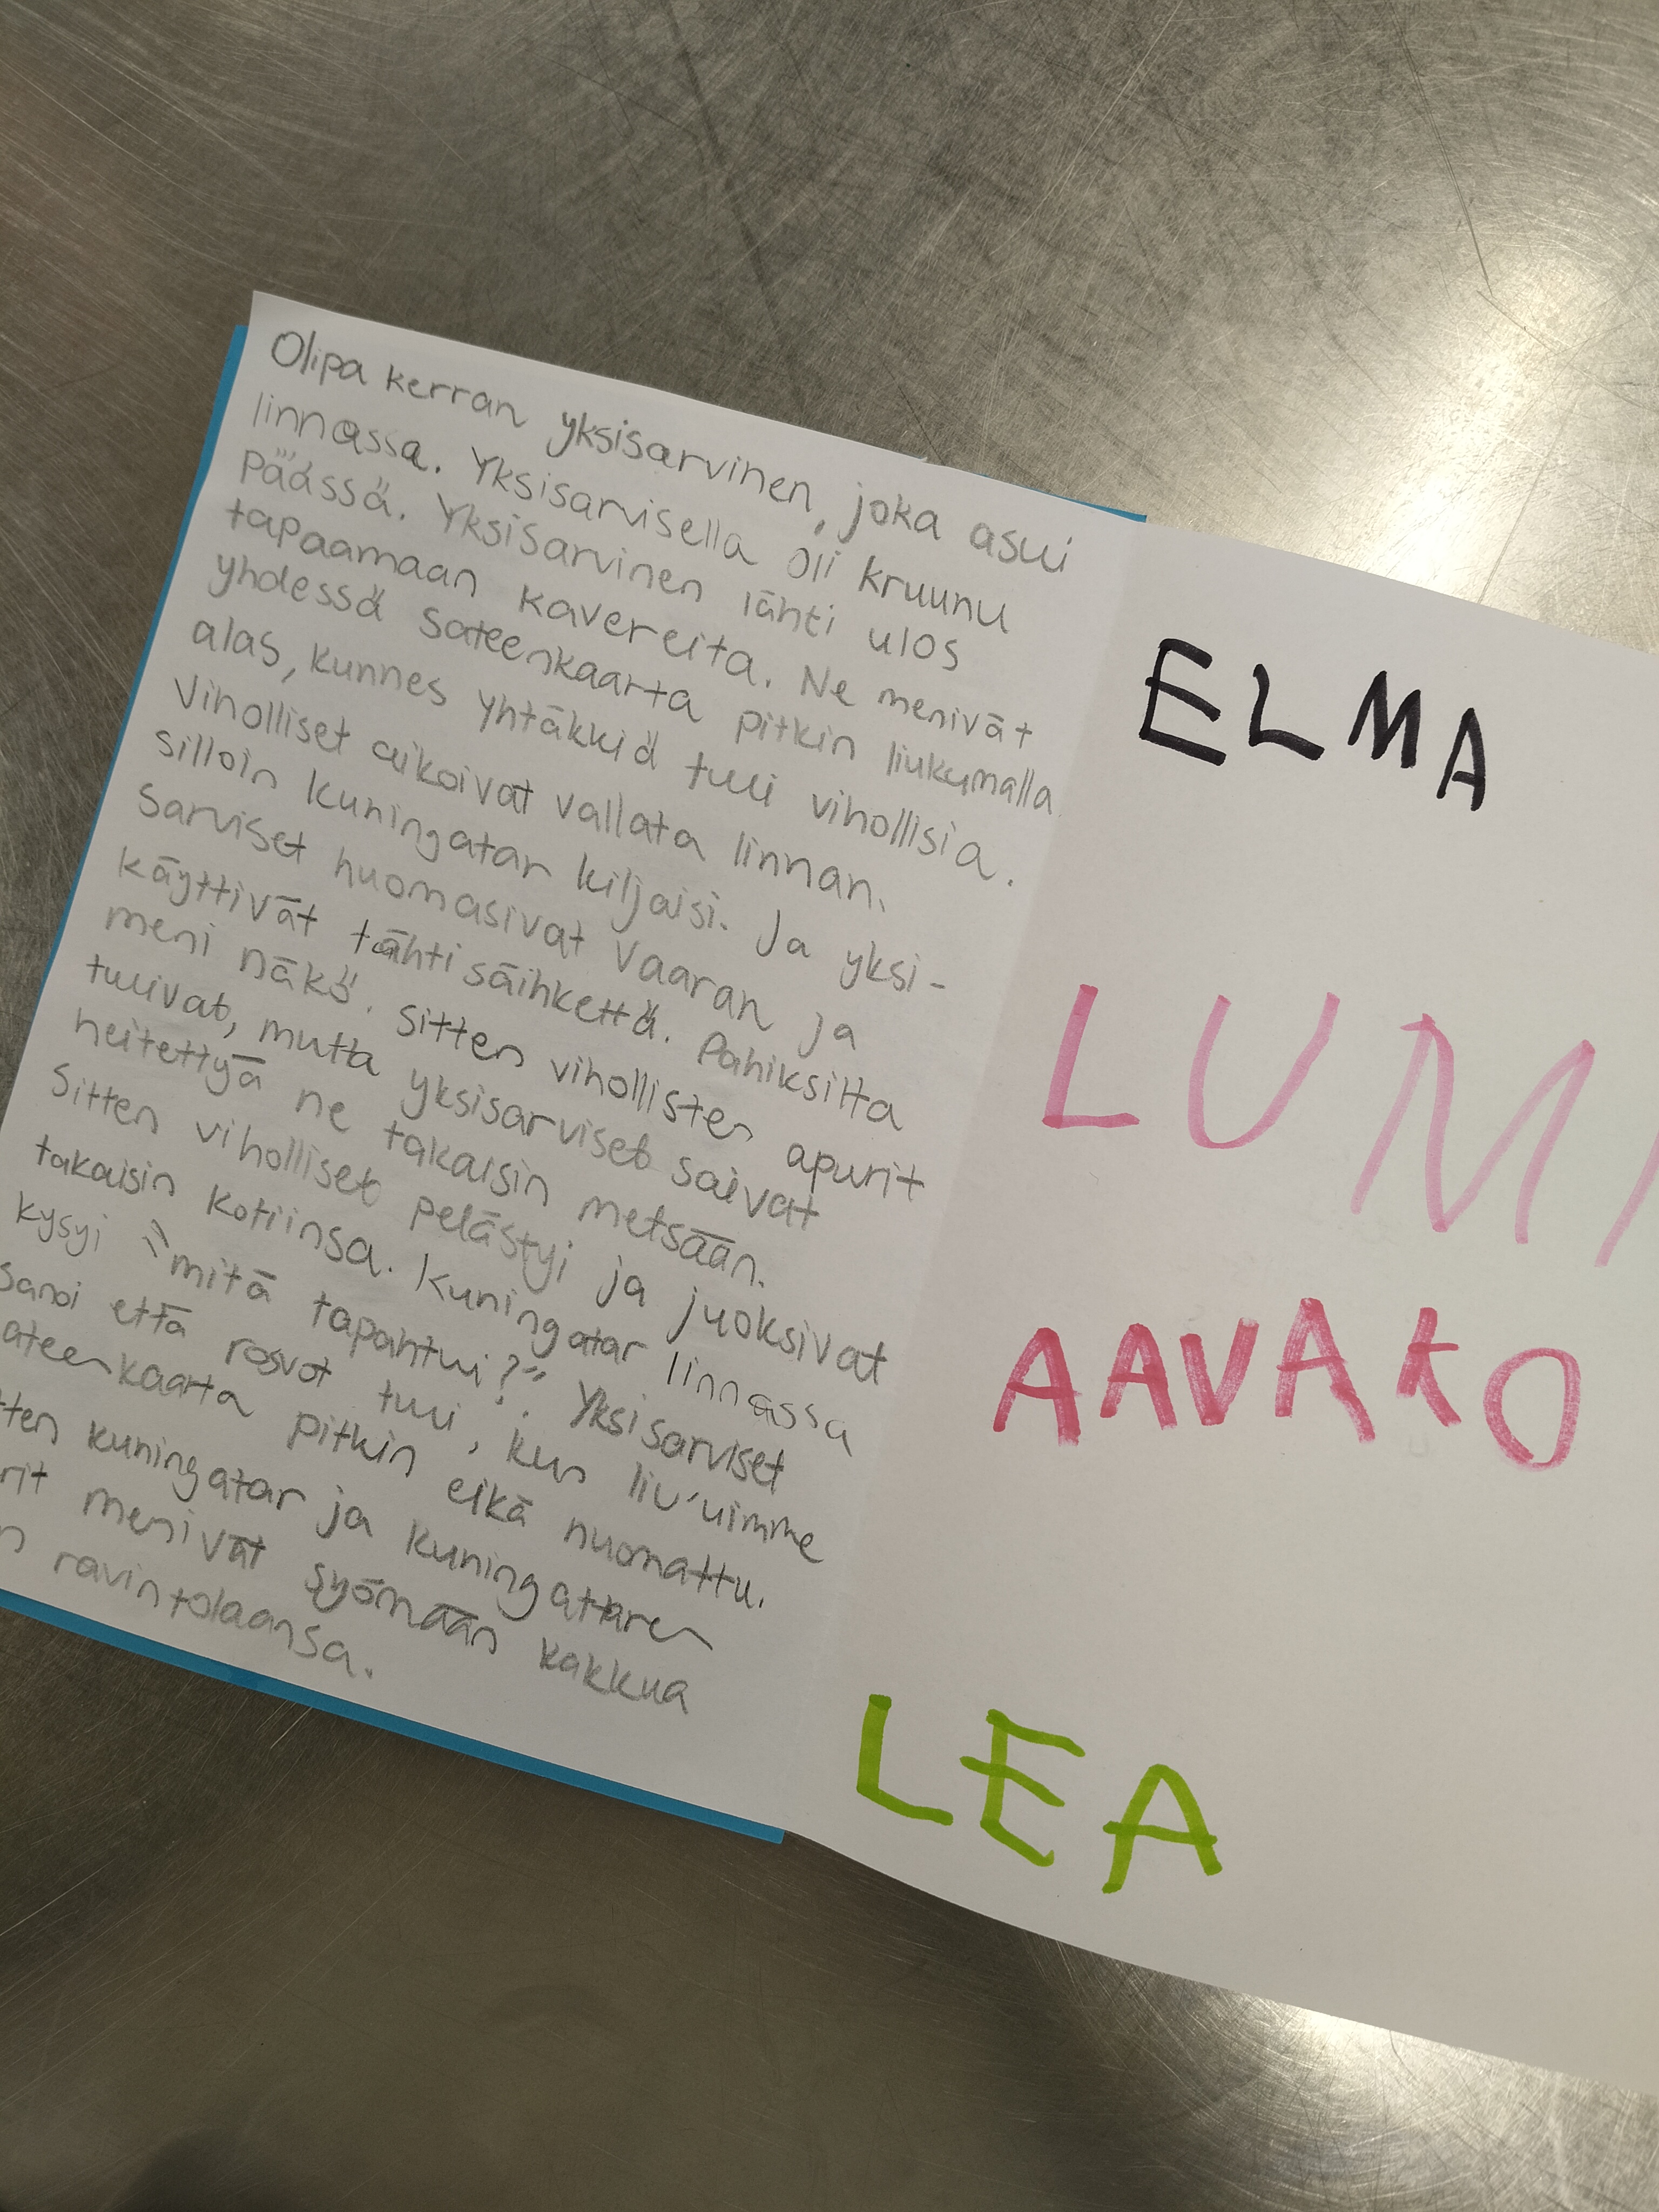 Olipa kerran yksisarvinen, joka asui
linnassa. Yksisarvisella oli kruunu
päässä. Yksisarvinen lähti ulos
tapaamaan kavereita. Ne menivät
yhdessä sateenkaarta pitkin liukumalla
alas, kunnes yhtäkkiä tuli vihollisia.
Viholliset aikoivat vallata linnan.
silloin kuningatar kiljaisi. Ja yksi-
sarviset huomasivat vaaran ja
käyttivät tähtisäihkettä. Pahiksilta
meni näkö. Sitten vihollisten apurit
tulivat, mutta yksisarviset saivat
heitettyä ne takaisin metsään.
Sitten viholliset pelästyi ja juoksivat
takaisin kotiinsa. Kuningatar linnassa
kysyi "mitä tapahtui?". Yksisarviset
sanoi että rosvot tuli, kun liu'uimme
ateenkaarta pitkin eikä huomattu.
tten kuningatar ja kuningattaren
rit menivät syömään kakkua
n ravintolaansa.
ELMA
LUMI
AAVA KO
LEA